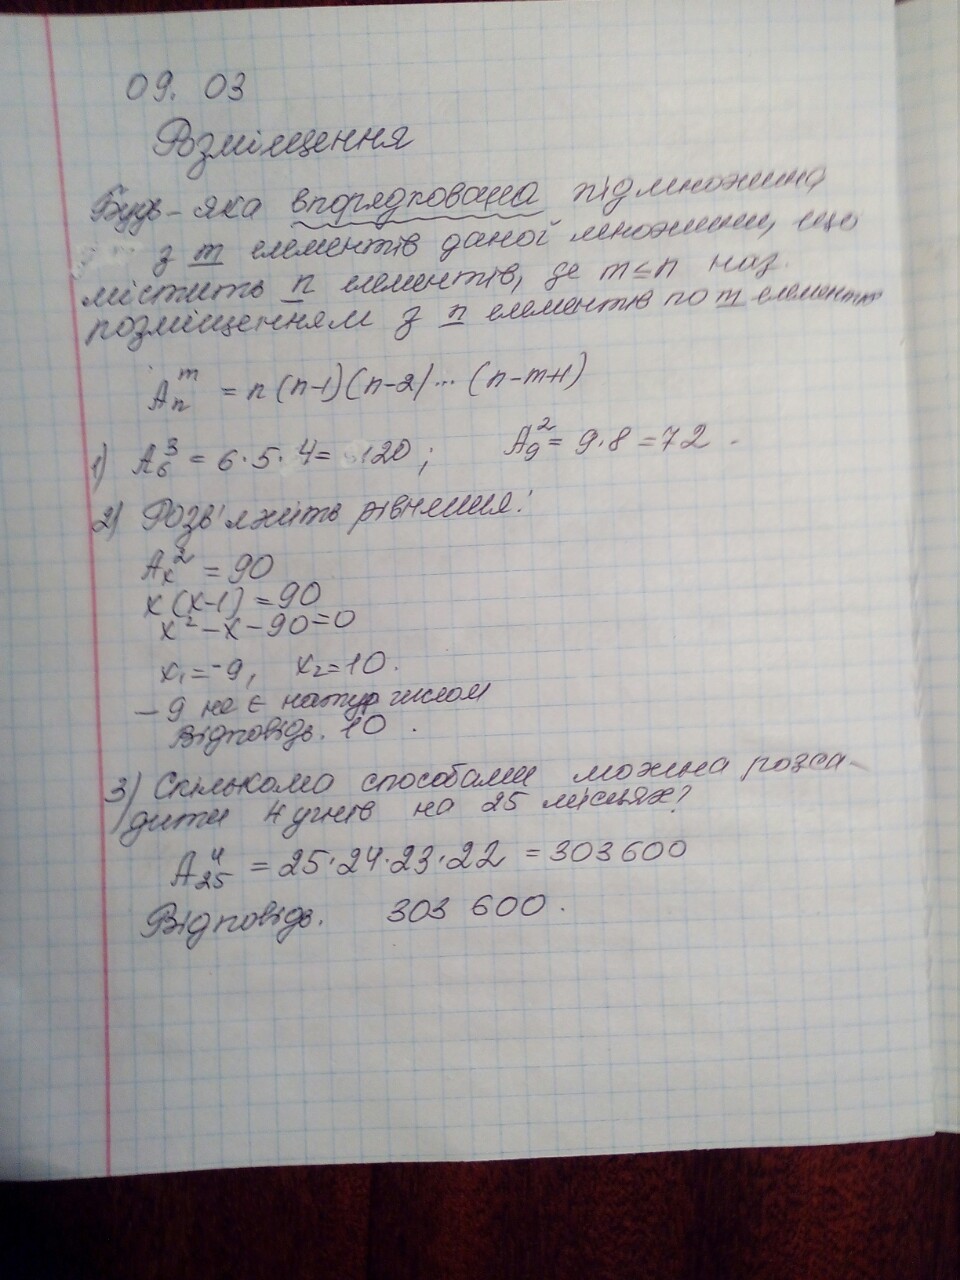 09. 03
Розміщення
Будь-яка впорядкована підмножина
з m елементів даної множини, що
містить n елементів, де m≤n наз.
розміщенням з n елементів по m елементів
A_n^m = n(n-1)(n-2)...(n-m+1)
1) A_6^3 = 6·5·4=120; A_9^2= 9·8=72.
2) Розв'яжіть рівняння:
A_x^2 = 90
x(x-1)=90
x²-x-90=0
x₁=-9, x₂=10.
-9 не є натур числом
Відповідь. 10.
3) Скількома способами можна розса-
дити 4 учнів на 25 місцях?
A_25^4 = 25·24·23·22 = 303600
Відповідь. 303 600.